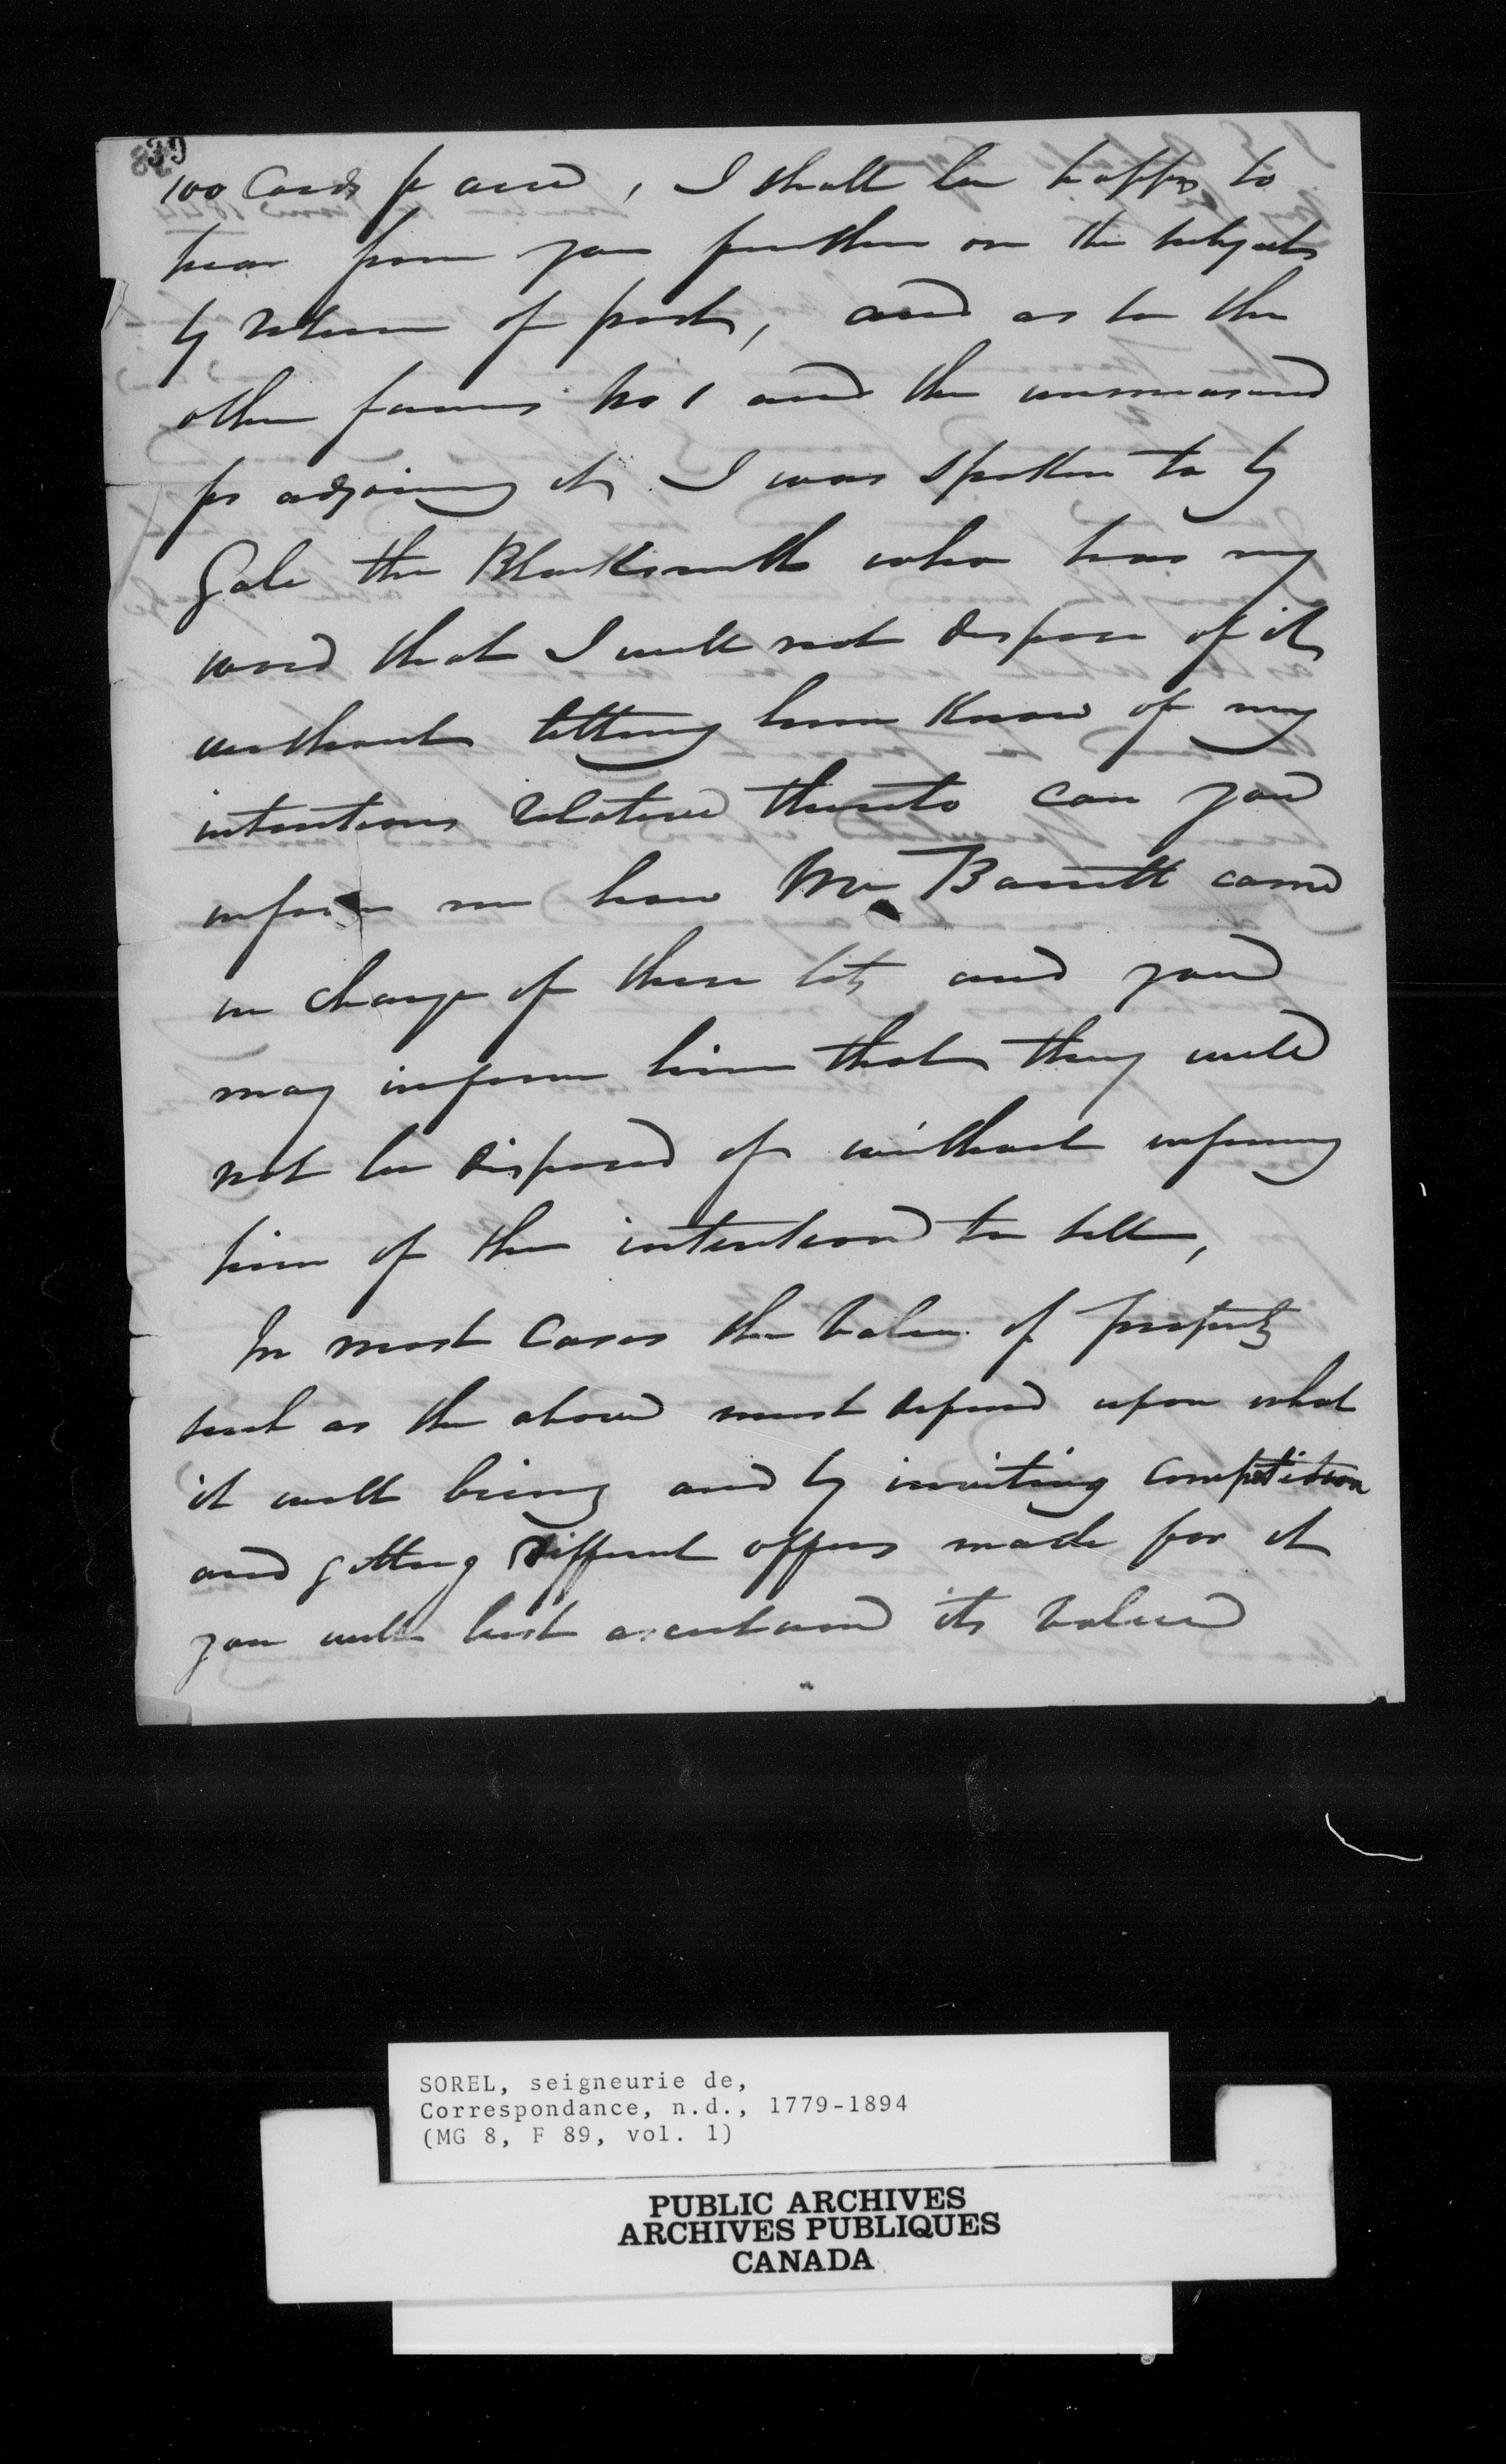 839
100 Cords p acre, I shall be happy to
hear from you further on the subject
by return of post, and as to the
other farms No 1 and the unmeasured
pc adjoining it, I was spoken to by
Gale the Blacksmith who has my
word that I will not dispose of it
without letting him know of my
intentions relative thereto can you
inform me how Mr Barrett came
in charge of these lots and you
may inform him that they will
not be disposed of without informing
him of the intention to sell,
In most cases the value of property
such as the above must depend upon what
it will bring and by inviting competition
and getting different offers made for it
you will best ascertain its value
SOREL, seigneurie de,
Correspondance, n.d., 1779-1894
(MG 8, F 89, vol. 1)
PUBLIC ARCHIVES
ARCHIVES PUBLIQUES
CANADA